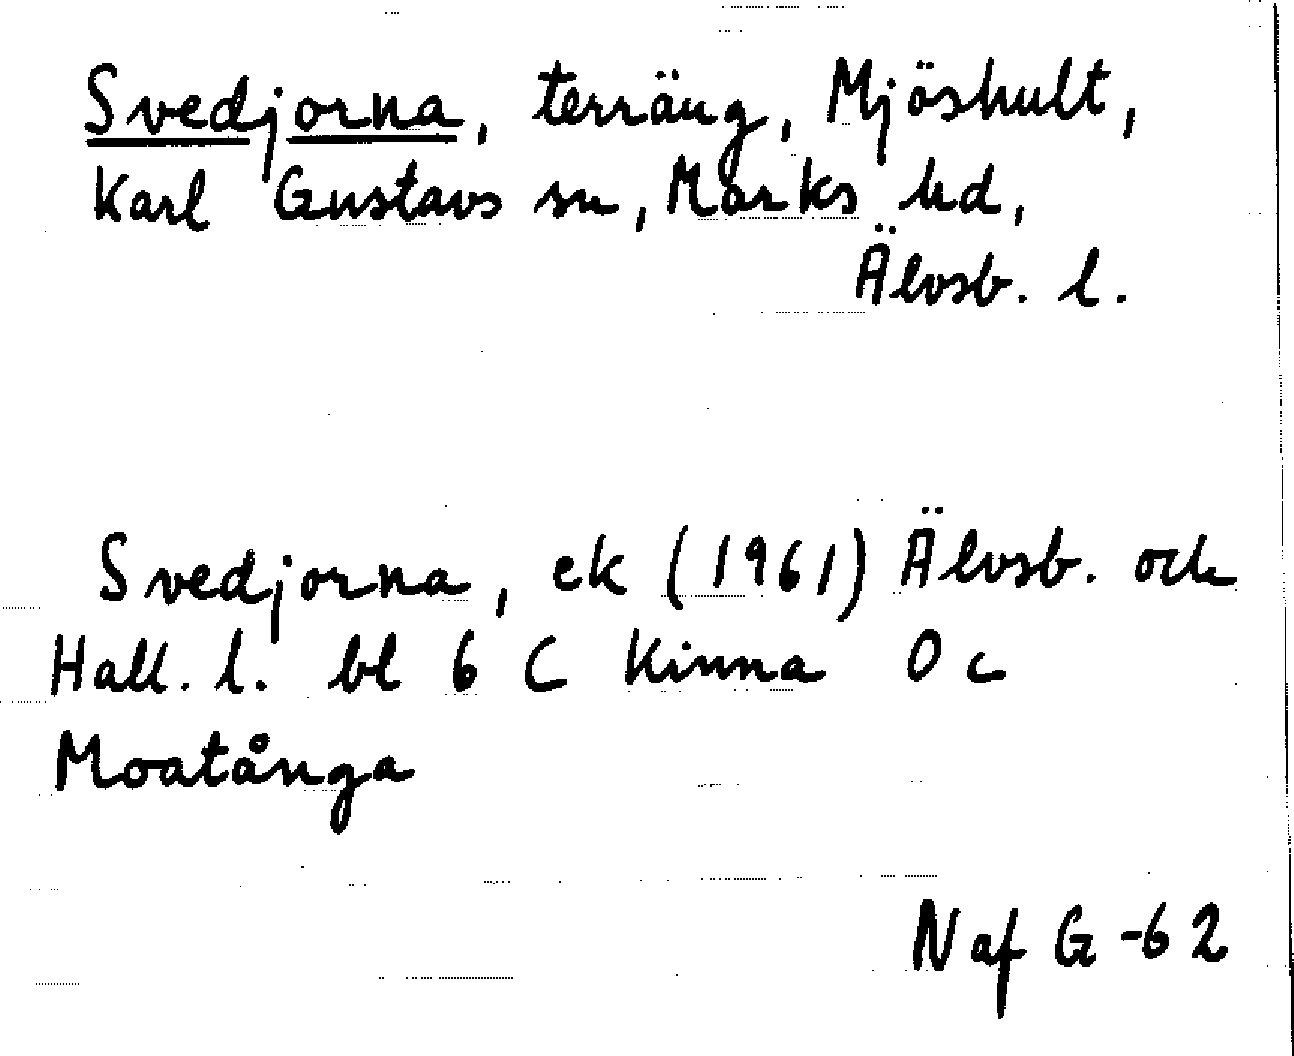 Svedjorna, terräng, Mjöshult,
Karl Gustavs sn, Marks hd,
Älvsb. l.
Svedjorna, ek (1961) Älvsb. och
Hall. l. bl 6 C Kinna 0 c
Moatånga
N af G -62